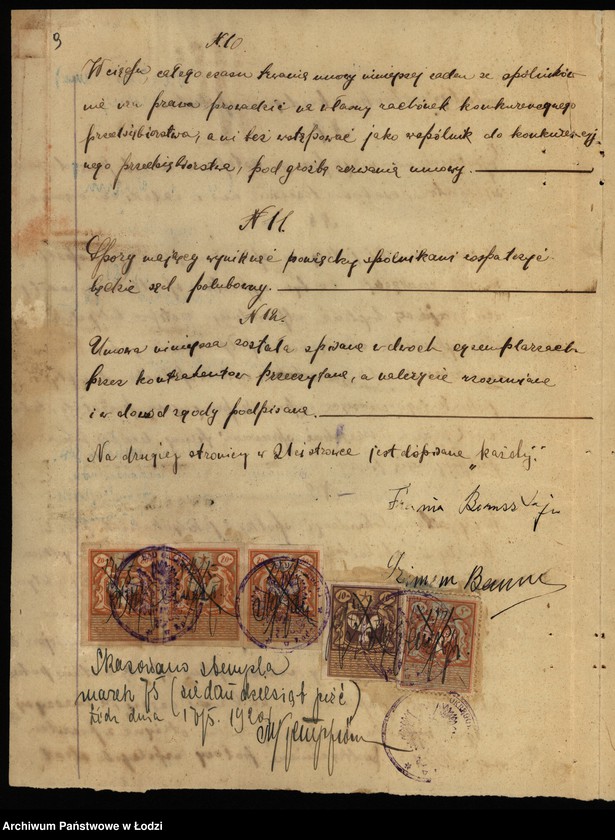 9
N 10.
W ciągu całego czasu trwania umowy niniejszej żaden ze spólników
nie ma prawa prowadzić na własny rachónek konkurencyjnego
przedsiębiorstwa, ani też wstępować jako wspólnik do konkurencyj
nego przedsiębiorstwa, pod groźbą zerwania umowy.
N 11.
Spory mający wyniknąć pomiędzy spólnikami rozpatrzyć
będzie sąd polubowny.
N 12.
Umowa niniejsza została spisana w dwóch egzemplarzach
przez kontrahentów przeczytana, a należycie rozumiana
i w dowód zgody podpisana.
Na drugiej stronicy w 21ej strowce jest dopisane „każdy".
Skasowano stempla
marek 75 (siedemdziesiąt pięć)
Łódź dnia 17/5. 1920
Archiwum Państwowe w Łodzi